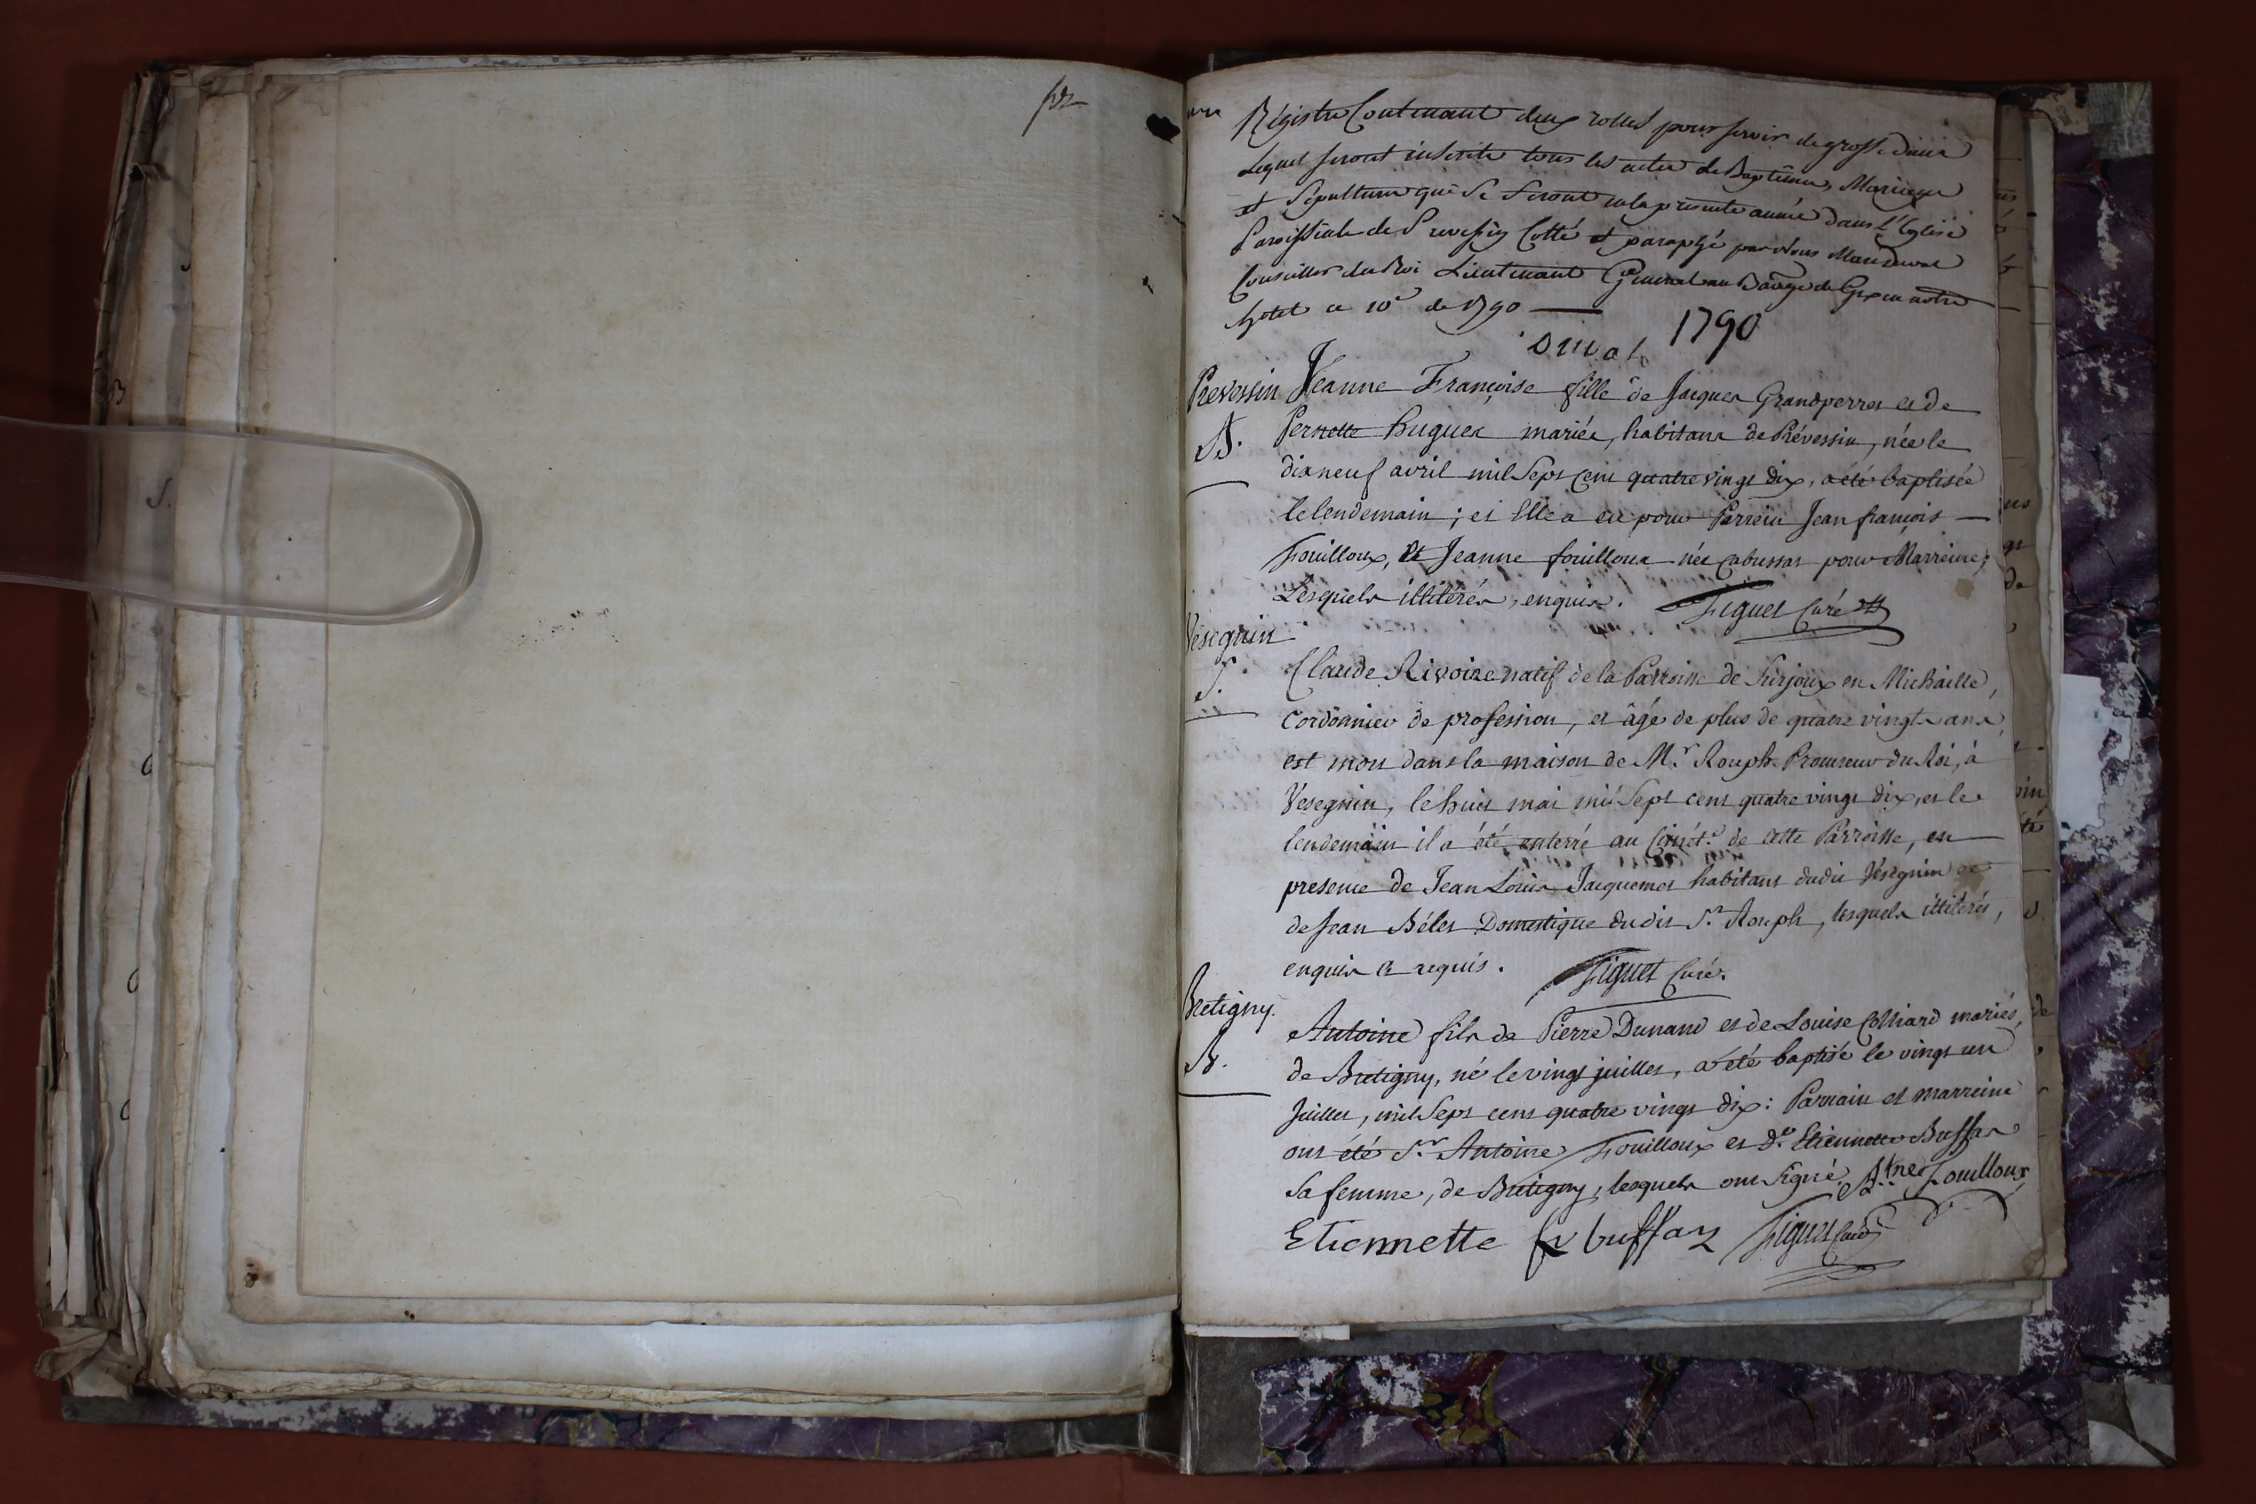 Régistre Contenant deux rolles pour servir de grosse dans
lequel seront inscrits tous les actes de Baptêmes, Mariages
et Sépultures qui se feront en la presente année dans l'Eglise
Paroissiale de Prevessin Cotté et paraphé par Nous
Conseiller du Roi Lieutenant General au Baage de Gex en notre
hotel ce 10e de 1790
1790
Prevessin Jeanne Françoise fille de Jacques Grandperret et de
B. Pernette hugues mariés, habitans de Prévessin, née le
dixneuf avril mil Sept cent quatre vingt dix, a été baptisée
le lendemain ; et Elle a eu pour Parrein Jean françois
Fouilloux, et Jeanne fouilloux née Cabussat pour Marreine ;
Lesquels illitérés, enquis. Figuet Curé
Vesegnin
S. Claude Rivoire natif de la Parroisse de Surjoux en Michaille,
Cordonnier de profession, et âgé de plus de quatre vingts ans,
est mort dans la maison de Mr. Rouph Procureur du Roi, à
Vesegnin, le huit mai mil Sept cent quatre vingt dix, et le
lendemain il a été enterré au Cimét.e de cette Parroisse, en
presence de Jean Louis Jacquemet habitant dudit Vesegnin et
de Jean Béles Domestique dudit Sr. Rouph, lesquels illitérés,
enquis et requis. Figuet Curé.
Bretigny.
B. Antoine fils de Pierre Dunand et de Louise Colliard mariés,
de Bretigny, né le vingt juillet, a été baptisé le vingt un
Juillet, mil Sept cent quatre vingt dix : Parrain et marreine
ont été Sr. Antoine Fouilloux et De. Etiennette Buffas
Sa femme, de Bretigny, lesquels ont signé. Atne Fouilloux
Etiennette buffaz Figuet Curé